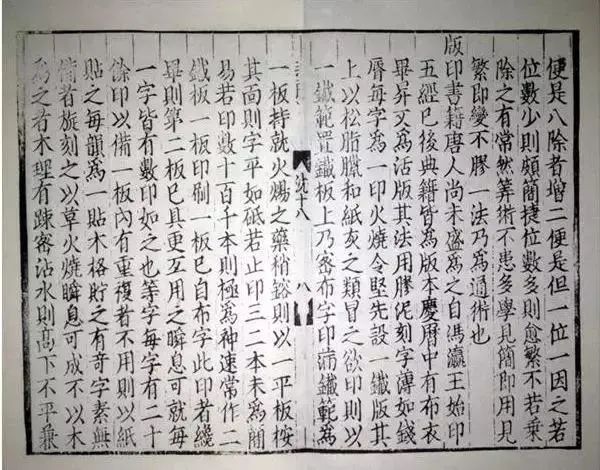 便是八除者增二便是但一位一因之若
位數少則頗簡捷位數多則愈繁不若乗
除之有常然筭術不患多學見簡即用見
繁即變不膠一法乃爲通術也
版印書籍唐人尚未盛爲之自馮瀛王始印
五經已後典籍皆爲版本慶曆中有布衣
畢昇又爲活版其法用膠泥刻字薄如錢
脣每字爲一印火燒令堅先設一鐵版其
上以松脂臘和紙灰之類冒之欲印則以
一鐵範置鐵板上乃密布字印滿鐵範爲
沈十八
八
一板持就火煬之藥稍鎔則以一平板按
其面則字平如砥若止印三二本未爲簡
易若印數十百千本則極爲神速常作二
鐵板一板印刷一板已自布字此印者纔
畢則第二板已具更互用之瞬息可就每
一字皆有數印如之也等字每字有二十
餘印以備一板內有重複者不用則以紙
貼之每韻爲一貼木格貯之有奇字素無
備者旋刻之以草火燒瞬息可成不以木
爲之者木理有踈密沾水則髙下不平兼